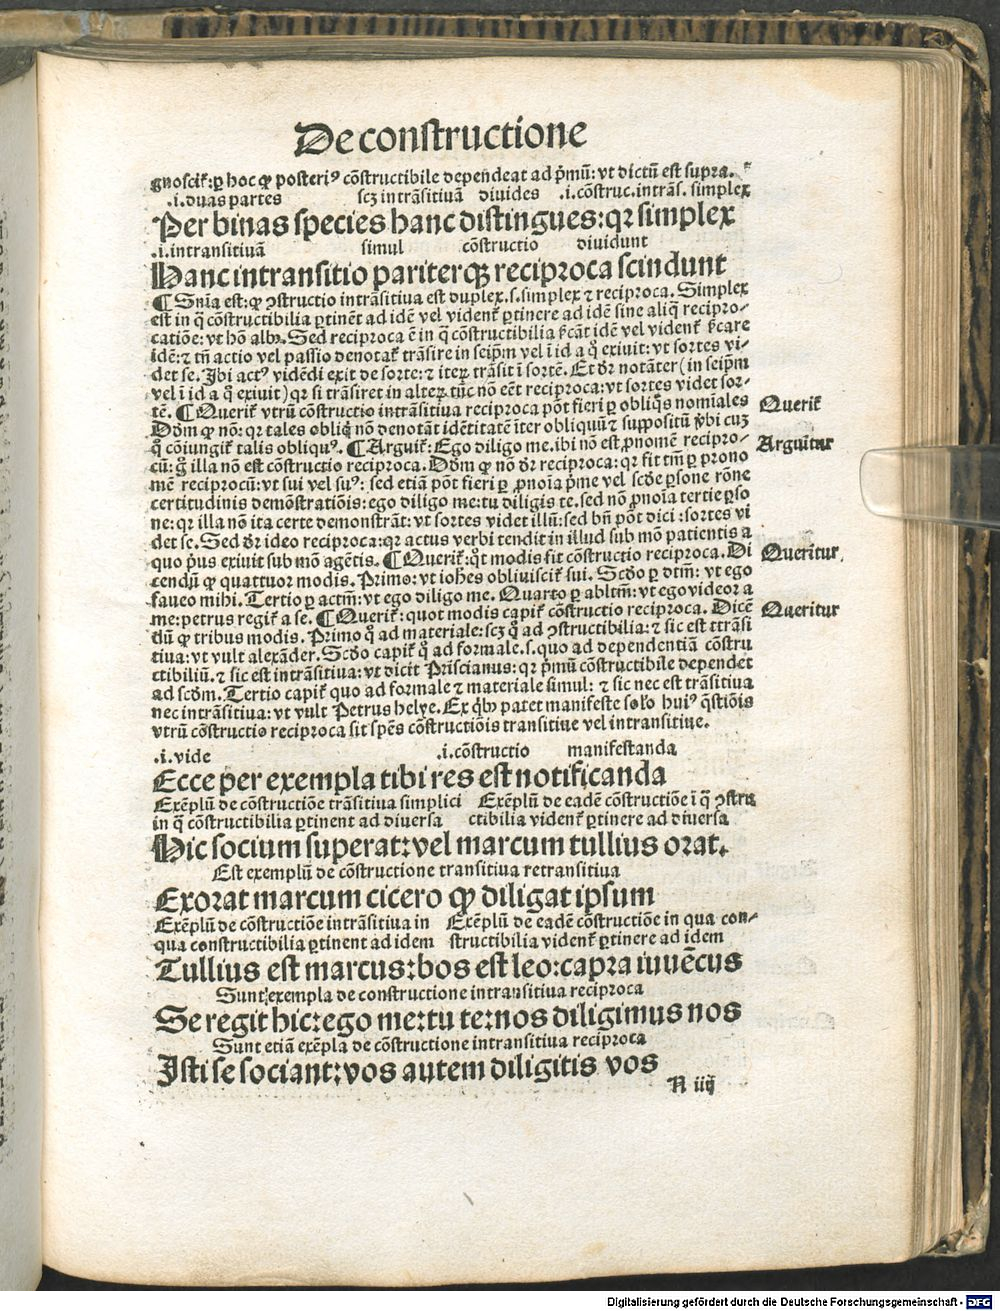 De constructione
gnoscit᷑: ꝑ hoc ꝙ posteriꝰ cōstructibile dependeat ad p̄mū: vt dictū est supra.
.i. duas partes scꝫ intrāsitiuā diuides .i. cōstruc. intrās. simplex
Per binas species hanc distingues: qꝛ simplex
.i. intransitiuā simul cōstructio diuidunt
Hanc intransitio pariterqꝫ reciproca scindunt
¶ Snīa est: ꝙ ꝯstructio intrāsitiua est duplex. s. simplex ⁊ reciproca. Simplex
est in q̄ cōstructibilia ꝑtinēt ad idē vel vident᷑ ꝑtinere ad idē sine aliq̄ recipro-
catiōe: vt hō albꝰ. Sed reciproca ē in q̄ cōstructibilia
idē: ⁊ tn̄ actio vel passio denotat᷑ trāsire in seip̄m vel ī id a q̊ exiuit: vt sortes vi-
det se. Ibi actꝰ vidēdi exit de sorte: ⁊ iteꝝ trāsit ī sortē. Et dr̄ notāter (in seip̄m
vel ī id a q̊ exiuit) qꝛ si trāsiret in alteꝝ tūc nō eēt reciproca: vt sortes videt sor-
tē. ¶ Querit᷑ vtrū cōstructio intrāsitiua reciproca pōt fieri ꝑ obliq̊s nomīales Querit᷑
Dōm ꝙ nō: qꝛ tales obliq̊ nō denotāt idētitatē īter obliquū ⁊ suppositū v̄bi cuꝫ
q̊ cōiungit᷑ talis obliquꝰ. ¶ Arguit᷑: Ego diligo me. ibi nō est ꝓnomē recipro- Arguitur
cū: g̊ illa nō est cōstructio reciproca. Dōm ꝙ nō dr̄ reciproca: qꝛ fit tm̄ ꝑ prono
mē reciprocū: vt sui vel suꝰ: sed etiā pōt fieri ꝑ ꝓnoīa p̄me vel scd̄e ꝑsone rōne
certitudinis demōstratiōis: ego diligo me: tu diligis te. sed nō ꝓnoīa tertie ꝑso
ne: qꝛ illa nō ita certe demonstrāt: vt sortes videt illū: sed bn̄ pōt dici: sortes vi
det se. Sed dr̄ ideo reciproca: qꝛ actus verbi tendit in illud sub mō patientis a
quo p̄us exiuit sub mō agētis. ¶ Querit᷑: q̊t modis fit cōstructio reciproca. Di Queritur.
cendū ꝙ quattuor modis. Primo: vt iohēs obliuiscit᷑ sui. Scd̄o ꝑ dtm̄: vt ego
faueo mihi. Tertio ꝑ actm̄: vt ego diligo me. Quarto ꝑ abltm̄: vt ego videor a
me: petrus regit᷑ a se. ¶ Querit᷑: quot modis capit᷑ cōstructio reciproca. Dicē Queritur
dū ꝙ tribus modis. Primo q̊ ad materiale: scꝫ q̊ ad ꝯstructibilia: ⁊ sic est ttrāsi
tiua: vt vult alexāder. Scd̄o capit᷑ q̊ ad formale. s. quo ad dependentiā cōstru
ctibiliū. ⁊ sic est intrāsitiua: vt dicit Priscianus: qꝛ p̄mū cōstructibile dependet
ad scd̄m. Tertio capit᷑ quo ad formale ⁊ materiale simul: ⁊ sic nec est trāsitiua
nec intrāsitiua: vt vult Petrus helye. Ex q̊bꝰ patet manifeste solo huiꝰ q̄stiōis
vtrū cōstructio reciproca sit sp̄es cōstructiōis transitiue vel intransitiue.
.i. vide .i. cōstructio manifestanda
Ecce per exempla tibi res est notificanda
Exēplū de cōstructiōe trāsitiua simplici Exēplū de eadē cōstructiōe ī q̄ ꝯstru
in q̄ cōstructibilia ꝑtinent ad diuersa ctibilia vident᷑ ꝑtinere ad diuersa
Hic socium superat: vel marcum tullius orat.
Est exemplū de cōstructione transitiua retransitiua
Exorat marcum cicero ꝙ diligat ipsum
Exēplū de cōstructiōe intrāsitiua in Exēplū de eadē cōstructiōe in qua con-
qua constructibilia ꝑtinent ad idem structibilia vident᷑ ꝑtinere ad idem
Tullius est marcus: bos est leo: capra iuuēcus
Sunt exempla de constructione intransitiua reciproca
Se regit hic: ego me: tu te: nos diligimus nos
Sunt etiā exēpla de cōstructione intransitiua reciproca
Isti se sociant: vos autem diligitis vos
N iiij
Digitalisierung gefördert durch die Deutsche Forschungsgemeinschaft - DFG